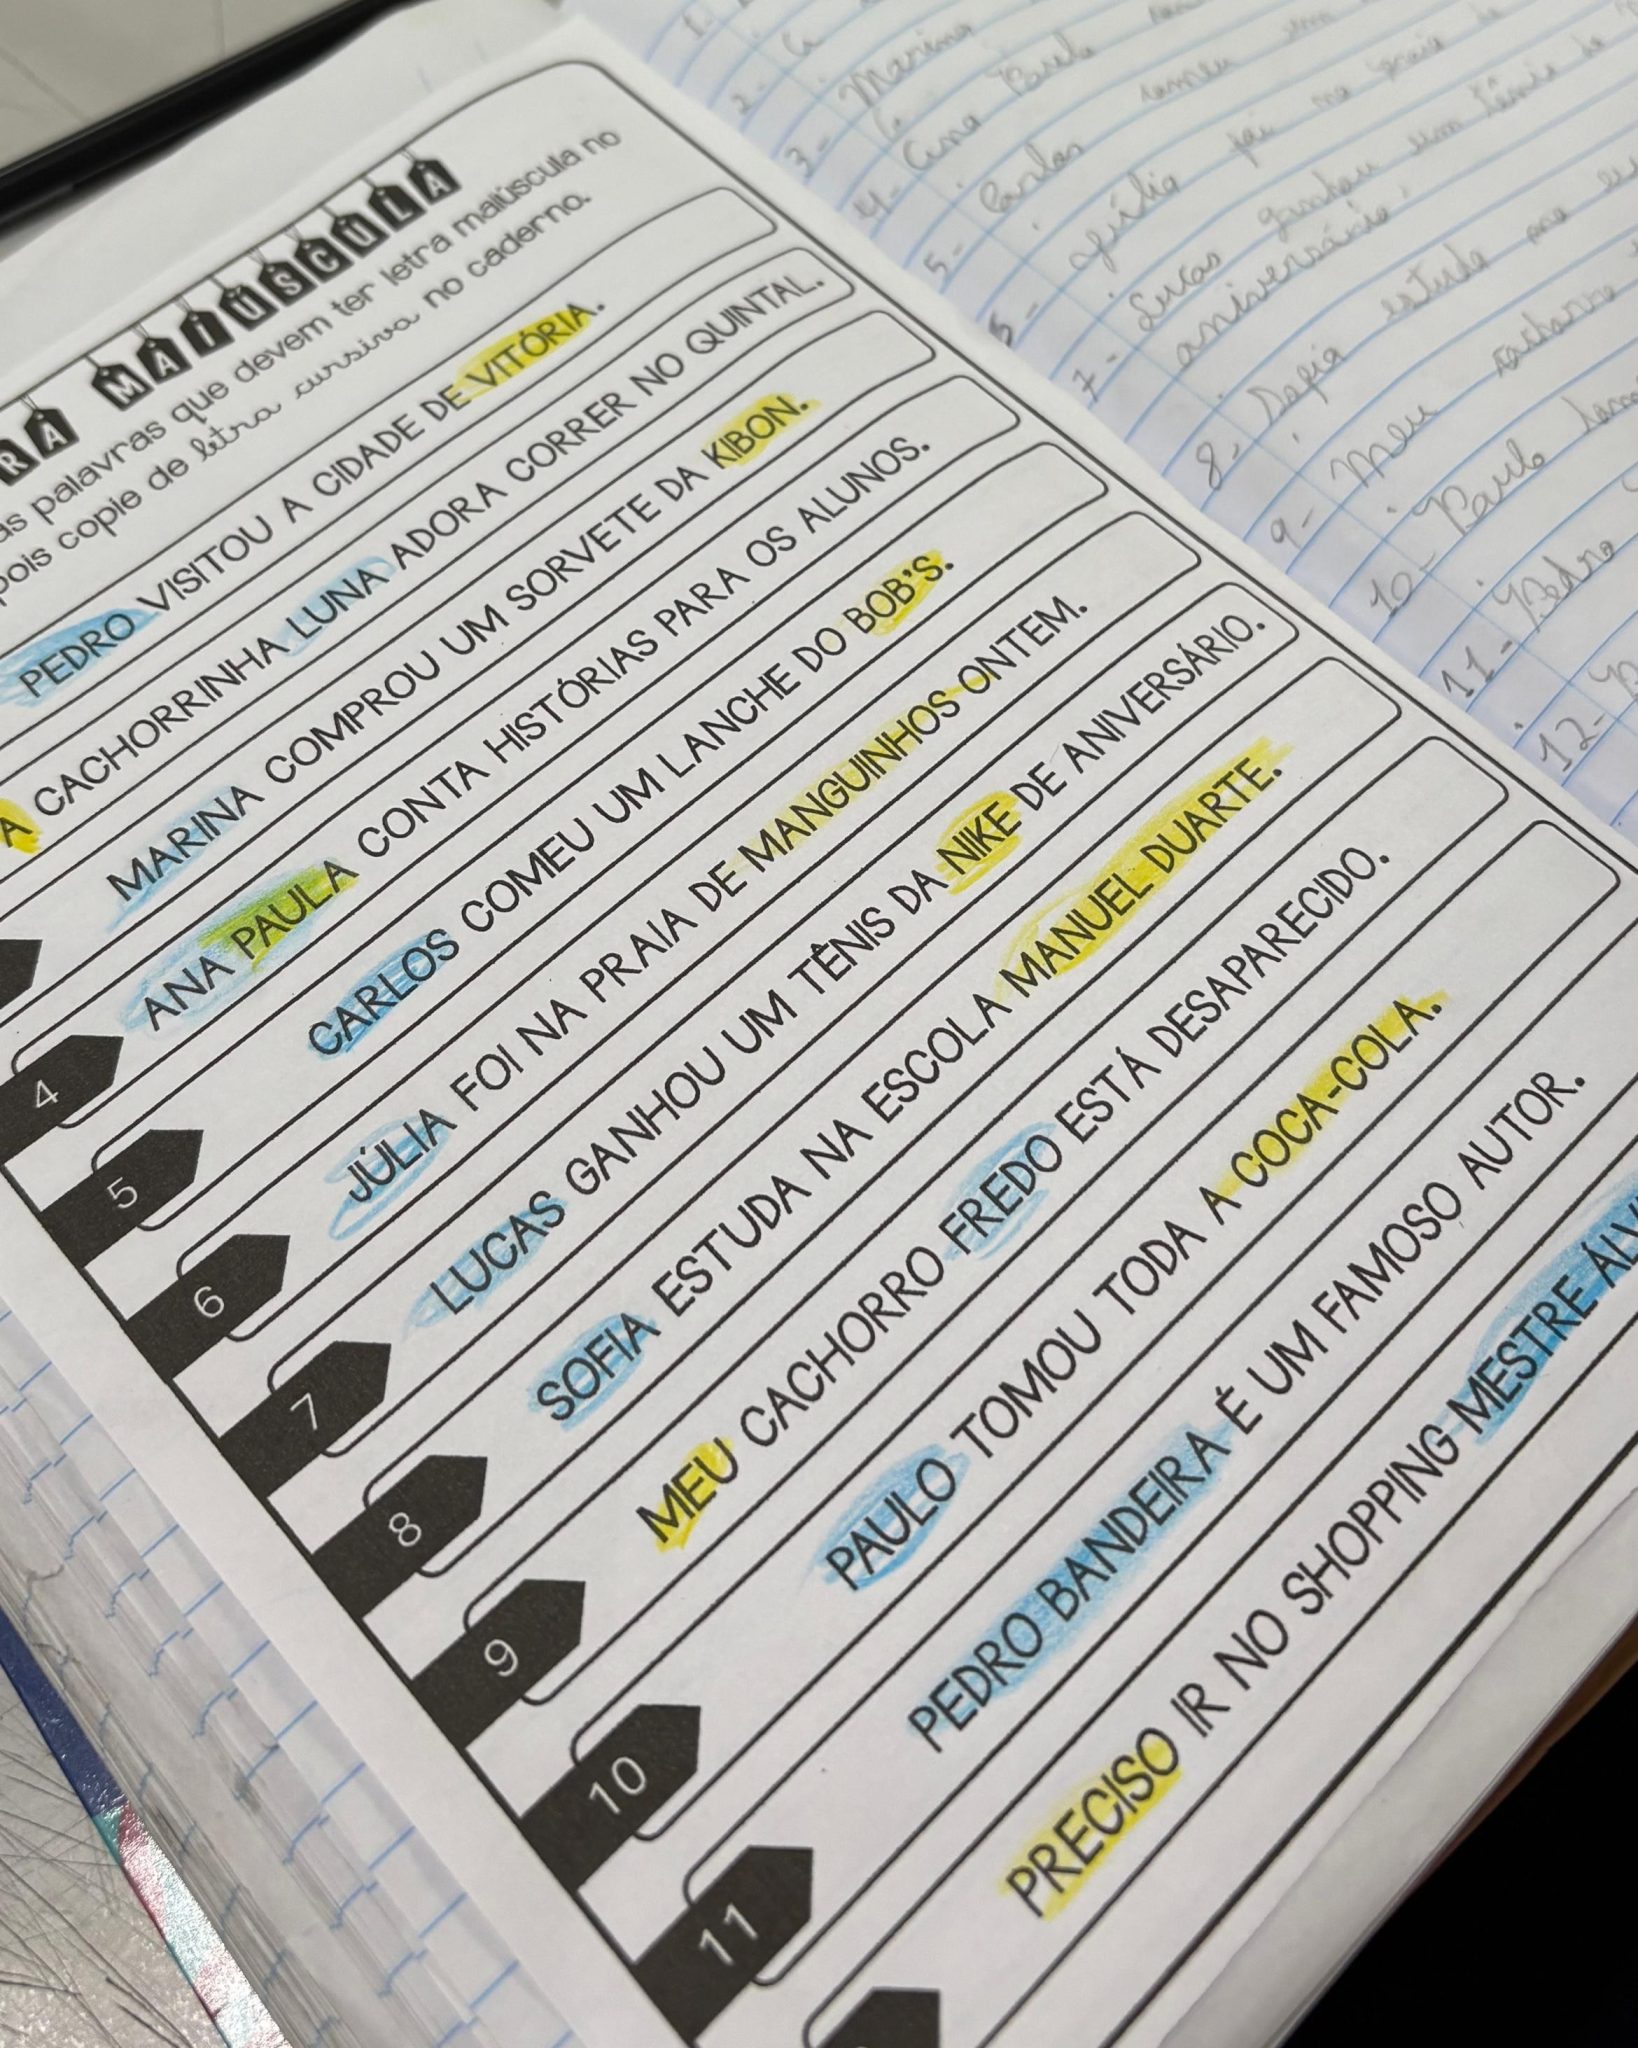 RA MAIÚSCULA
as palavras que devem ter letra maiúscula no
pois copie de letra cursiva no caderno.
PEDRO VISITOU A CIDADE DE VITÓRIA.
A CACHORRINHA LUNA ADORA CORRER NO QUINTAL.
MARINA COMPROU UM SORVETE DA KIBON.
4 ANA PAULA CONTA HISTÓRIAS PARA OS ALUNOS.
5 CARLOS COMEU UM LANCHE DO BOB'S.
6 JÚLIA FOI NA PRAIA DE MANGUINHOS ONTEM.
7 LUCAS GANHOU UM TÊNIS DA NIKE DE ANIVERSÁRIO.
8 SOFIA ESTUDA NA ESCOLA MANUEL DUARTE.
9 MEU CACHORRO FREDO ESTÁ DESAPARECIDO.
10 PAULO TOMOU TODA A COCA-COLA.
11 PEDRO BANDEIRA É UM FAMOSO AUTOR.
PRECISO IR NO SHOPPING MESTRE ÁLV
2-
3- Marina
4- Ana Paula
5- Carlos comeu um
Júlia foi na praia de
7- Lucas ganhou um tênis da
aniversário.
8- Sofia estuda na
9- Meu cachorro
10- Paulo
11- Pedro
12-